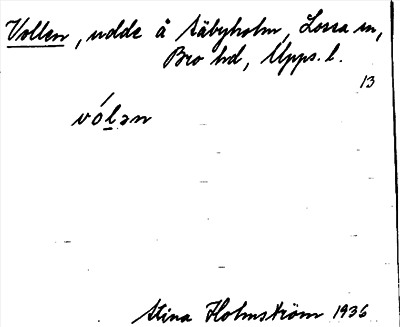 Vollen, udde å Säbyholm, Lossa sn,
Bro hd, Upps. l.
13
vól̲ən
Stina Holmström 1936